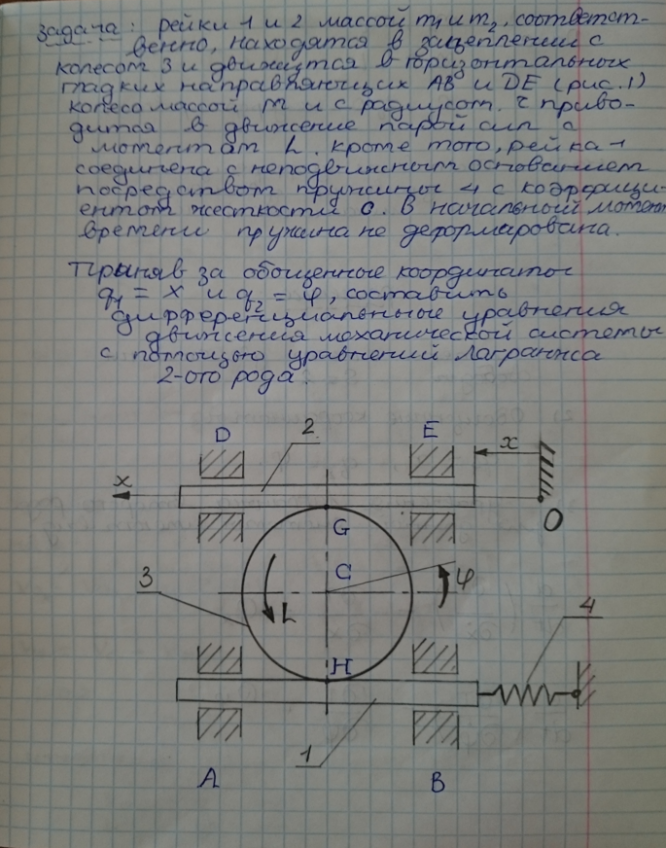 задача: рейки 1 и 2 массой m1 и m2, соответст-
венно, находятся в зацеплении с
колесом 3 и движутся в горизонтальных
гладких направляющих АВ и DE (рис.1)
колесо массой m и с радиусом r приво-
дится в движение парой сил с
моментам L. кроме того, рейка 1
соединена с неподвижным основанием
посредством пружины 4 с коэффици-
ентом жесткости с. В начальный момент
времени пружина не деформирована.
Приняв за обощенные координаты
q1 = x и q2 = φ, составить
дифференциальные уравнения
движения механической системы
с помощью уравнений Лагранжа
2-ого рода.
D 2 E
x x
O
G
3 C φ
L 4
H
1
A B